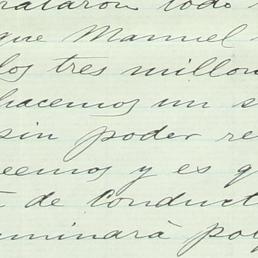 rataron todo
que Manuel
los tres millon
hacemos un s
sin poder re
eemos y es q
de conduct
minará por